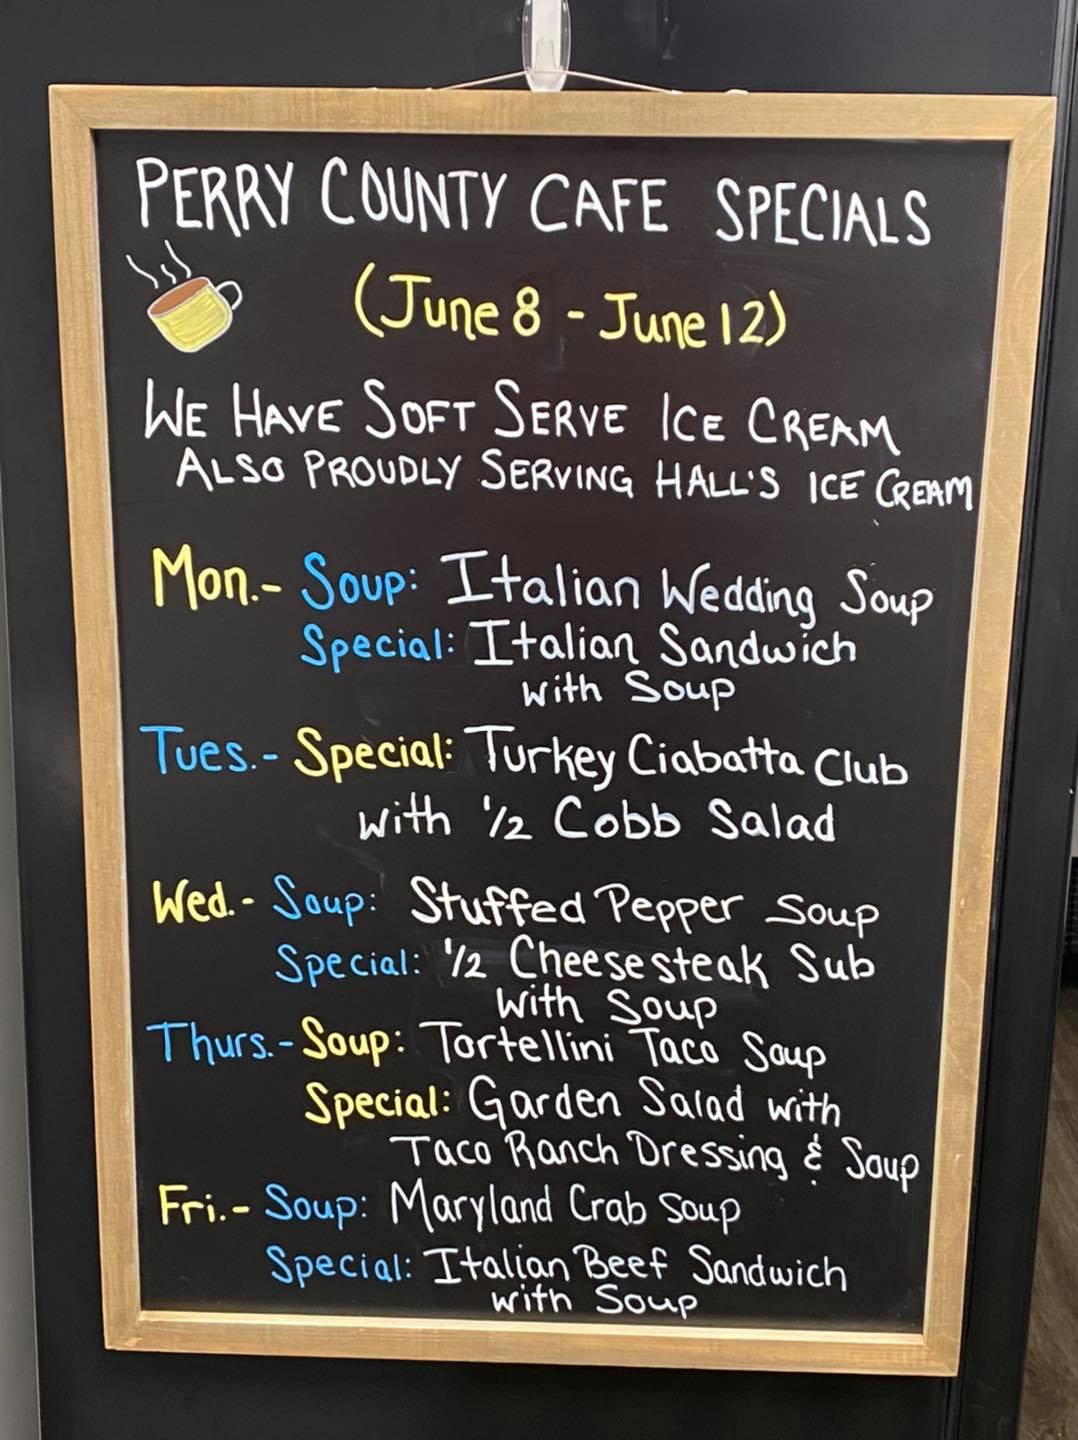 PERRY COUNTY CAFE SPECIALS
(June 8 - June 12)
WE HAVE SOFT SERVE ICE CREAM
ALSO PROUDLY SERVING HALL'S ICE CREAM
Mon.- Soup: Italian Wedding Soup
Special: Italian Sandwich
with Soup
Tues.- Special: Turkey Ciabatta Club
with 1/2 Cobb Salad
Wed.- Soup: Stuffed Pepper Soup
Special: 1/2 Cheesesteak Sub
with Soup
Thurs.- Soup: Tortellini Taco Soup
Special: Garden Salad with
Taco Ranch Dressing & Soup
Fri.- Soup: Maryland Crab Soup
Special: Italian Beef Sandwich
with Soup